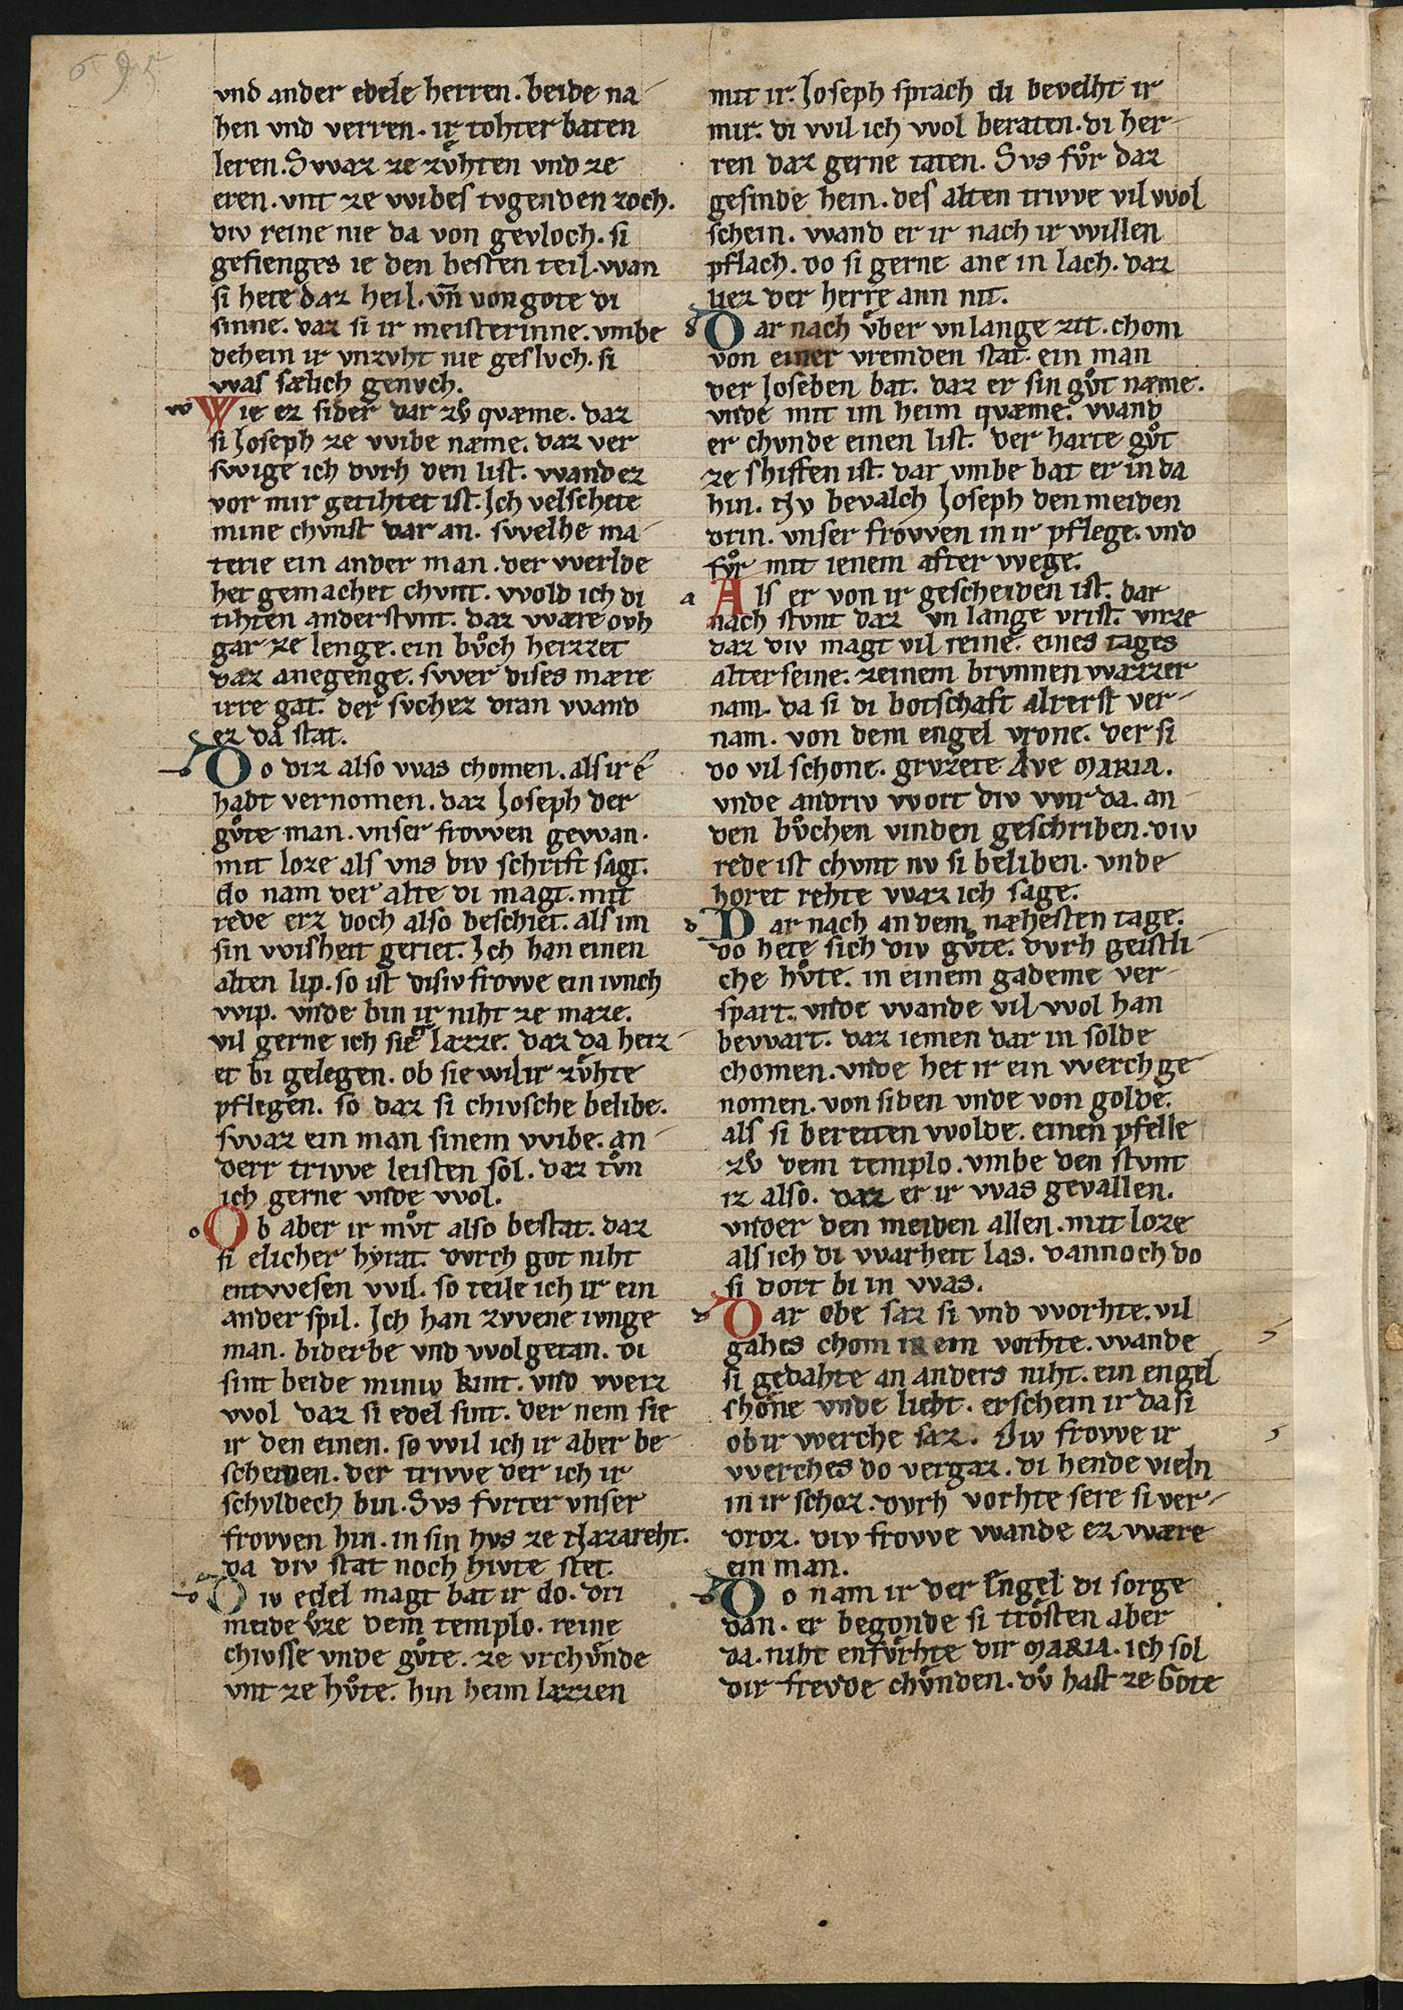 695
vnd ander edele herren. beide na-
hen vnd verren. ir tohter baten
leren. Swaz ze zvͤhten vnd ze
eren. vnt ze wibes tvgenden zoch.
div reine nie da von gevloch. si
gefienges ie den besten teil. wan
si hete daz heil. vn̄ von gote di
sinne. daz si ir meisterinne. vmbe
dehein ir vnzvht nie geslvch. si
was sælich genvch.
w Wie ez sider dar zvͦ quæme. daz
si Joseph ze wibe næme. daz ver
swige ich dvrh den list. wand ez
vor mir getihtet ist. Ich velschete
mine chvnst dar an. swelhe ma-
terie ein ander man. der werlde
het gemachet chvnt. wold ich di
tihten anderstvnt. daz wære ovh
gar ze lenge. ein bvͦch heizzet
daz anegenge. swer dises mære
irre gat. der svchez dran wand
ez da stat.
Do diz also was chomen. als ir e
habt vernomen. daz Joseph der
gvͦte man. vnser frowen gewan.
mit loze als vns div schrift sagt.
do nam der alte di magt. mit
rede erz doch also beschiet. als im
sin wisheit geriet. Ich han einen
alten lip. so ist disiv frowe ein ivnch
wip. vnde bin ir niht ze maze.
vil gerne ich sie lazze. daz da heiz-
et bi gelegen. ob sie wil ir zvͤhte
pflegen. so daz si chivsche belibe.
swaz ein man sinem wibe. an-
derr triwe leisten sol. daz tvͦn
ich gerne vnde wol.
o Ob aber ir mvͦt also bestat. daz
si elicher hyrat. dvrch got niht
entwesen wil. so teile ich ir ein
ander spil. Ich han zwene ivnge
man. biderbe vnd wol getan. di
sint beide miniv kint. vnd weiz
wol daz si edel sint. der nem sie
ir den einen. so wil ich ir aber be-
scheinen. der triwe der ich ir
schvldech bin. Svs fvrter vnser
frowen hin. in sin hvs ze Nazareht.
da div stat noch hivte stet.
Div edel magt bat ir do. dri
meide vͤze dem templo. reine
chivsse vnde gvͦte. ze vrchvͤnde
vnt ze hvͦte. hin heim lazzen
mit ir. Joseph sprach di bevelht ir
mir. di wil ich wol beraten. di her-
ren daz gerne taten. Svs fvͦr daz
gesinde hein. des alten triwe vil wol
schein. wand er ir nach ir willen
pflach. do si gerne ane in lach. daz
liez der herre ann nit.
d Dar nach vͤber vnlange zit. chom
von einer vremden stat. ein man
der Joseben bat. daz er sin gvͦt næme.
vnde mit im heim quæme. wand
er chvnde einen list. der harte gvͦt
ze shiffen ist. dar vmbe bat er in da
hin. Nv bevalch Joseph den meiden
drin. vnser frowen in ir pflege. vnd
fvͦr mit ienem after wege.
a Als er von ir gescheiden ist. dar
nach stvnt daz vnlange vrist. vnze
daz div magt vil reine. eines tages
alterseine. zeinem brvnnen wazzer
nam. da si di botschaft alrerst ver-
nam. von dem engel vrone. der si
do vil schone. grvzete Ave MARIA.
vnde andriv wort div wir da. an
den bvͦchen vinden geschriben. div
rede ist chvnt nv si beliben. vnde
horet rehte waz ich sage.
d Dar nach an dem næhesten tage.
do hete sich div gvͦte. dvrh geistli-
che hvͦte. in einem gademe ver-
spart. vnde wande vil wol han
bewart. daz iemen dar in solde
chomen. vnde het ir ein werch ge
nomen. von siden vnde von golde.
als si bereiten wolde. einen pfelle
zvͦ dem templo. vmbe den stvnt
iz also. daz er ir was gevallen.
vnder den meiden allen. mit loze
als ich di warheit las. dannoch do
si dort bi in was.
d Dar obe saz si vnd worhte. vil
gahes chom ir ein vorhte. wande
si gedahte an anders niht. ein engel
schone vnde lieht. erschein ir da si
ob ir werche saz. Div frowe ir
werches do vergaz. di hende vieln
in ir schoz. dvrh vorhte sere si ver-
droz. div frowe wande ez wære
ein man.
Do nam ir der Engel di sorge
dan. er begonde si trösten aber
da. niht enfvͤrhte dir MARIA. ich sol
dir frevde chvͤnden. dvͦ hast ze Gote